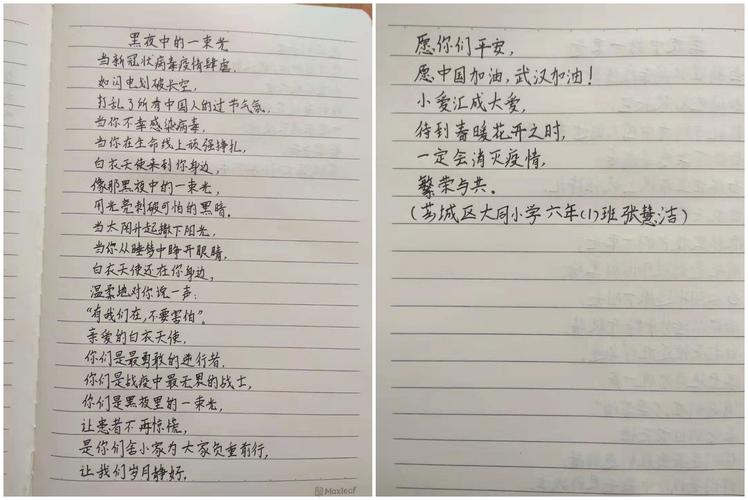 黑夜中的一束光
当新冠状病毒疫情肆虐，
如闪电划破长空，
打乱了所有中国人的过节气氛，
当你不幸感染病毒，
当你在生命线上顽强挣扎，
白衣天使来到你身边，
像那黑夜中的一束光，
用光亮刺破可怕的黑暗。
当太阳升起撒下阳光，
当你从睡梦中睁开眼睛，
白衣天使还在你身边，
温柔地对你说一声：
“有我们在，不要害怕”。
亲爱的白衣天使，
你们是最勇敢的逆行者，
你们是战疫中最无畏的战士，
你们是黑夜里的一束光，
让患者不再惊慌，
是你们舍小家为大家负重前行，
让我们岁月静好。
Maxleaf
愿你们平安，
愿中国加油，武汉加油！
小爱汇成大爱，
待到春暖花开之时，
一定会消灭疫情，
繁荣与共。
（芗城区大同小学六年(1)班 张慧洁）